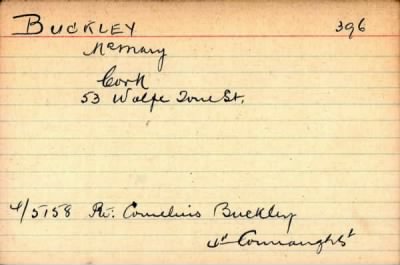 BUCKLEY 396
Mrs Mary
Cork
53 Wolfe Tone St.
4/5158 Pte. Cornelius Buckley
1st Connaughts